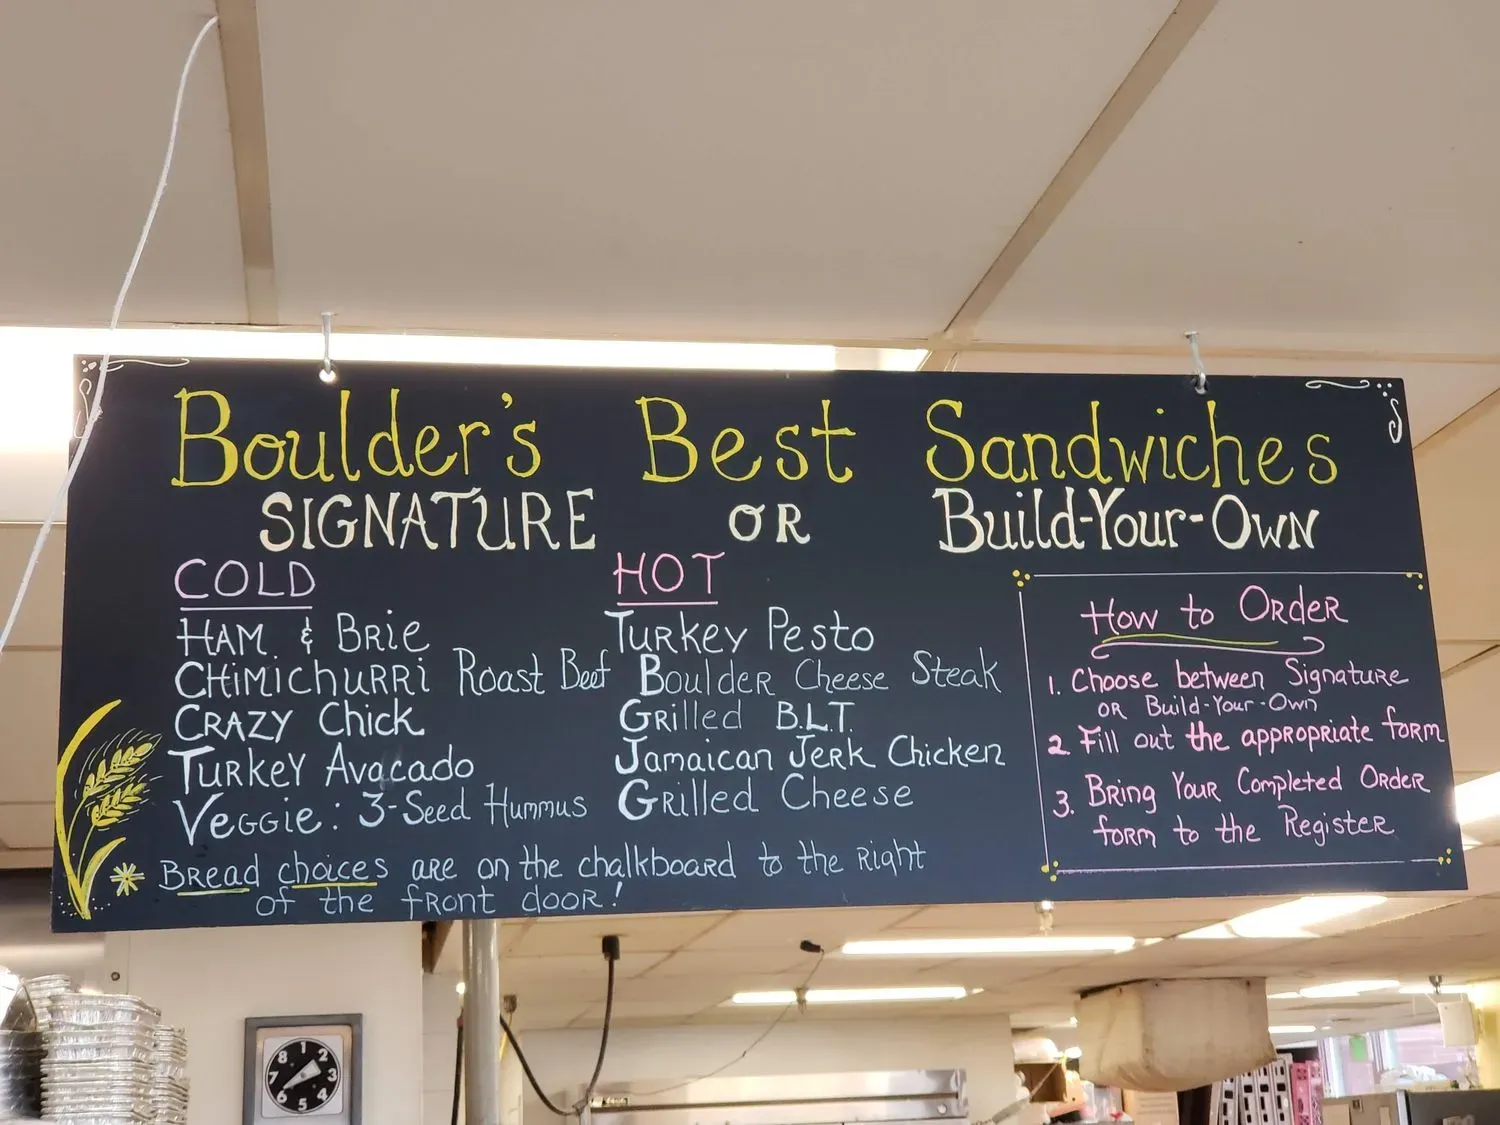 Boulder's Best Sandwiches
SIGNATURE OR Build-Your-Own
COLD
HAM & Brie
CHimichuRRi Roast Beef
CRAZY Chick
Turkey Avocado
Veggie: 3-Seed Hummus
HOT
Turkey Pesto
Boulder Cheese Steak
Grilled B.L.T.
Jamaican Jerk Chicken
Grilled Cheese
How to Order
1. Choose between Signature
OR Build-Your-Own
2 Fill out the appropriate form
3. Bring Your Completed Order
form to the Register
* Bread choices are on the chalkboard to the Right
of the front door!
8 1 2
7 3
6 5 4